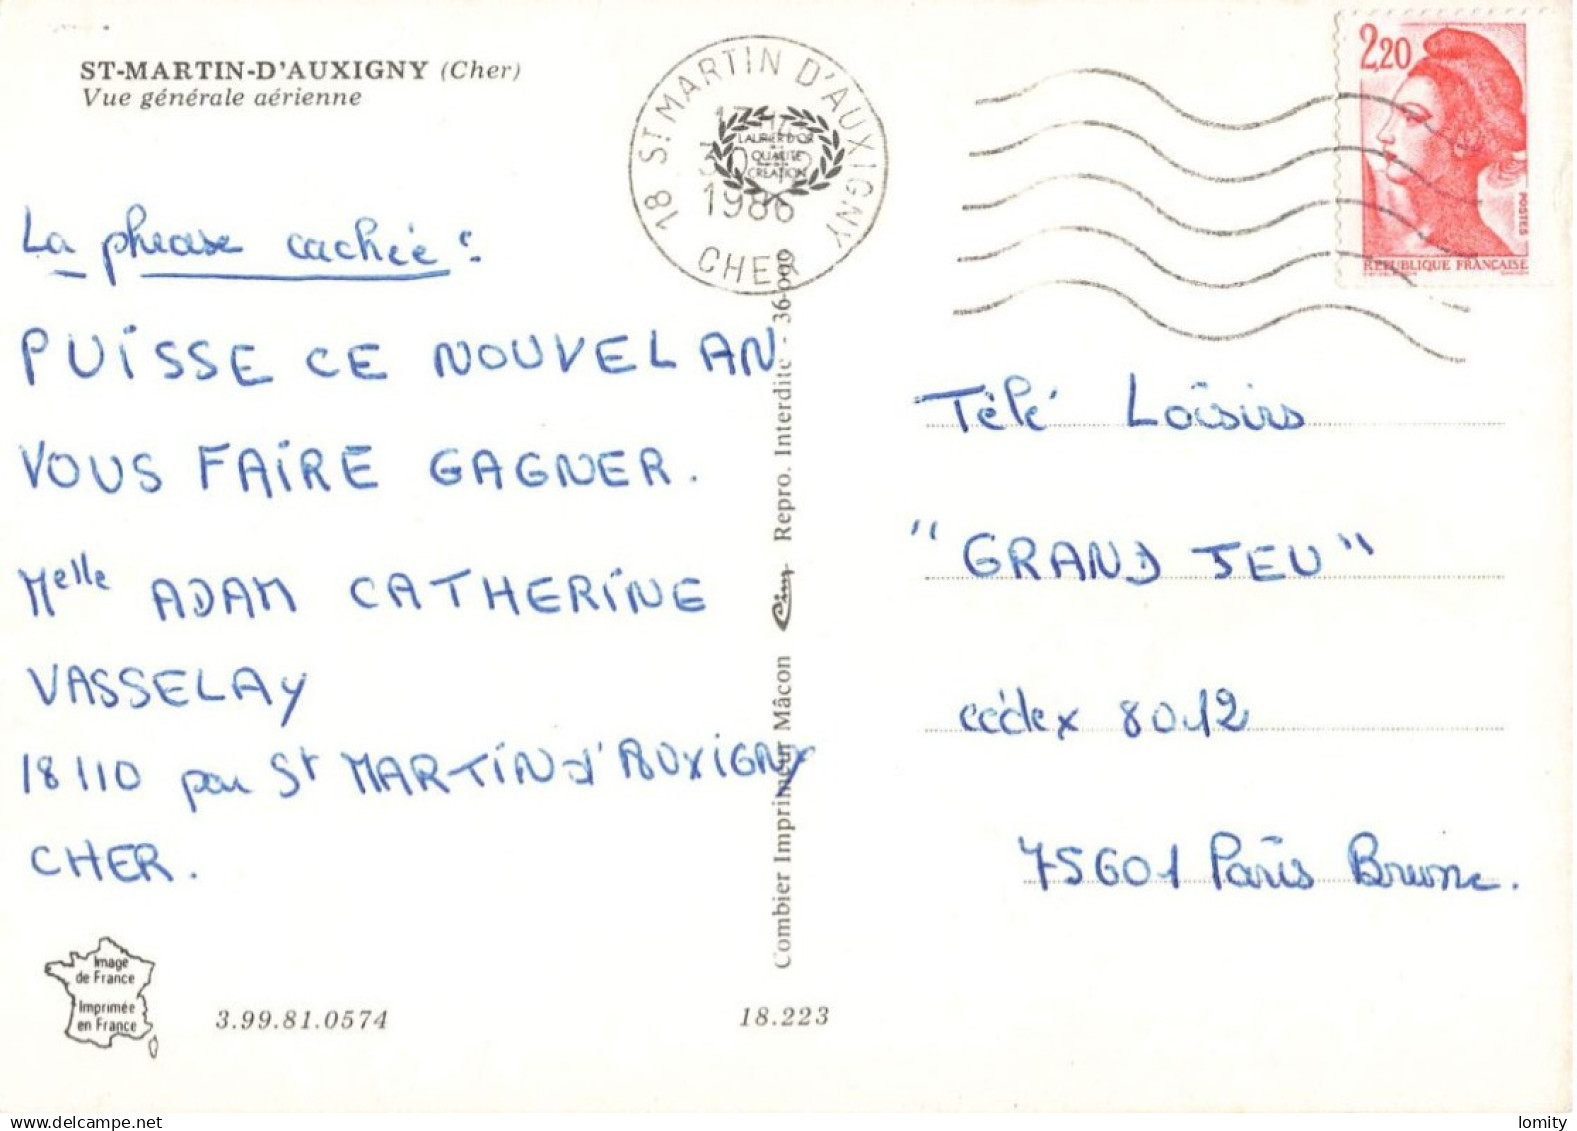 ST-MARTIN-D'AUXIGNY (Cher)
Vue générale aérienne
18 ST MARTIN D'AUXIGNY
30-12
1986
CHER
LAURIER D'OR
QUALITE
CREATION
2,20
POSTES
REPUBLIQUE FRANÇAISE
La phrase cachée :
PUISSE CE NOUVEL AN
VOUS FAIRE GAGNER.
Melle ADAM CATHERINE
VASSELAY
18110 par St MARTIN d'AUXIGNY
CHER.
Combier Imprimeur Mâcon Cim Repro. Interdite - 36-000
Télé Loisirs
"GRAND JEU"
cédex 8012
75601 Paris Brune.
Image
de France
Imprimée
en France
3.99.81.0574
18.223
lomity